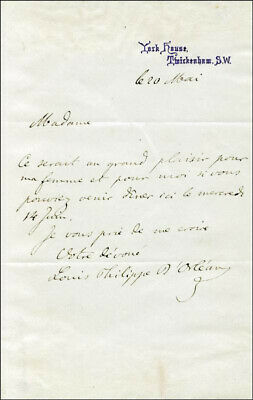 York House,
Twickenham. S.W.
le 20 Mai
Madame
Ce serait un grand plaisir pour
ma femme et pour moi si vous
pouviez venir dîner ici le mercredi
14 Juin.
Je vous prie de me croire
Votre dévoué
Louis Philippe d'Orléans